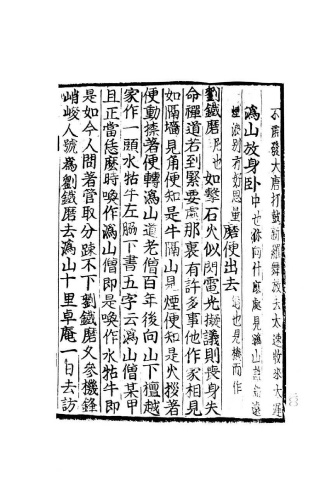 不虛發大唐打鼓新羅舞放去太速收來太遲
溈山放身臥中也爾向什麼處見溈山誰知遠
煙浪別有好思量磨便出去過也見機而作
劉鐵磨尼也如擊石火似閃電光擬議則喪身失
命禪道若到緊要處那裏有許多事他作家相見
如隔墻見角便知是牛隔山見煙便知是火拶著
便動捺著便轉溈山道老僧百年後向山下檀越
家作一頭水牯牛左脇下書五字云溈山僧某甲
且正當恁麼時喚作溈山僧即是喚作水牯牛即
是如今人問著管取分踈不下劉鐵磨久參機鋒
峭峻人號為劉鐵磨去溈山十里卓庵一日去訪